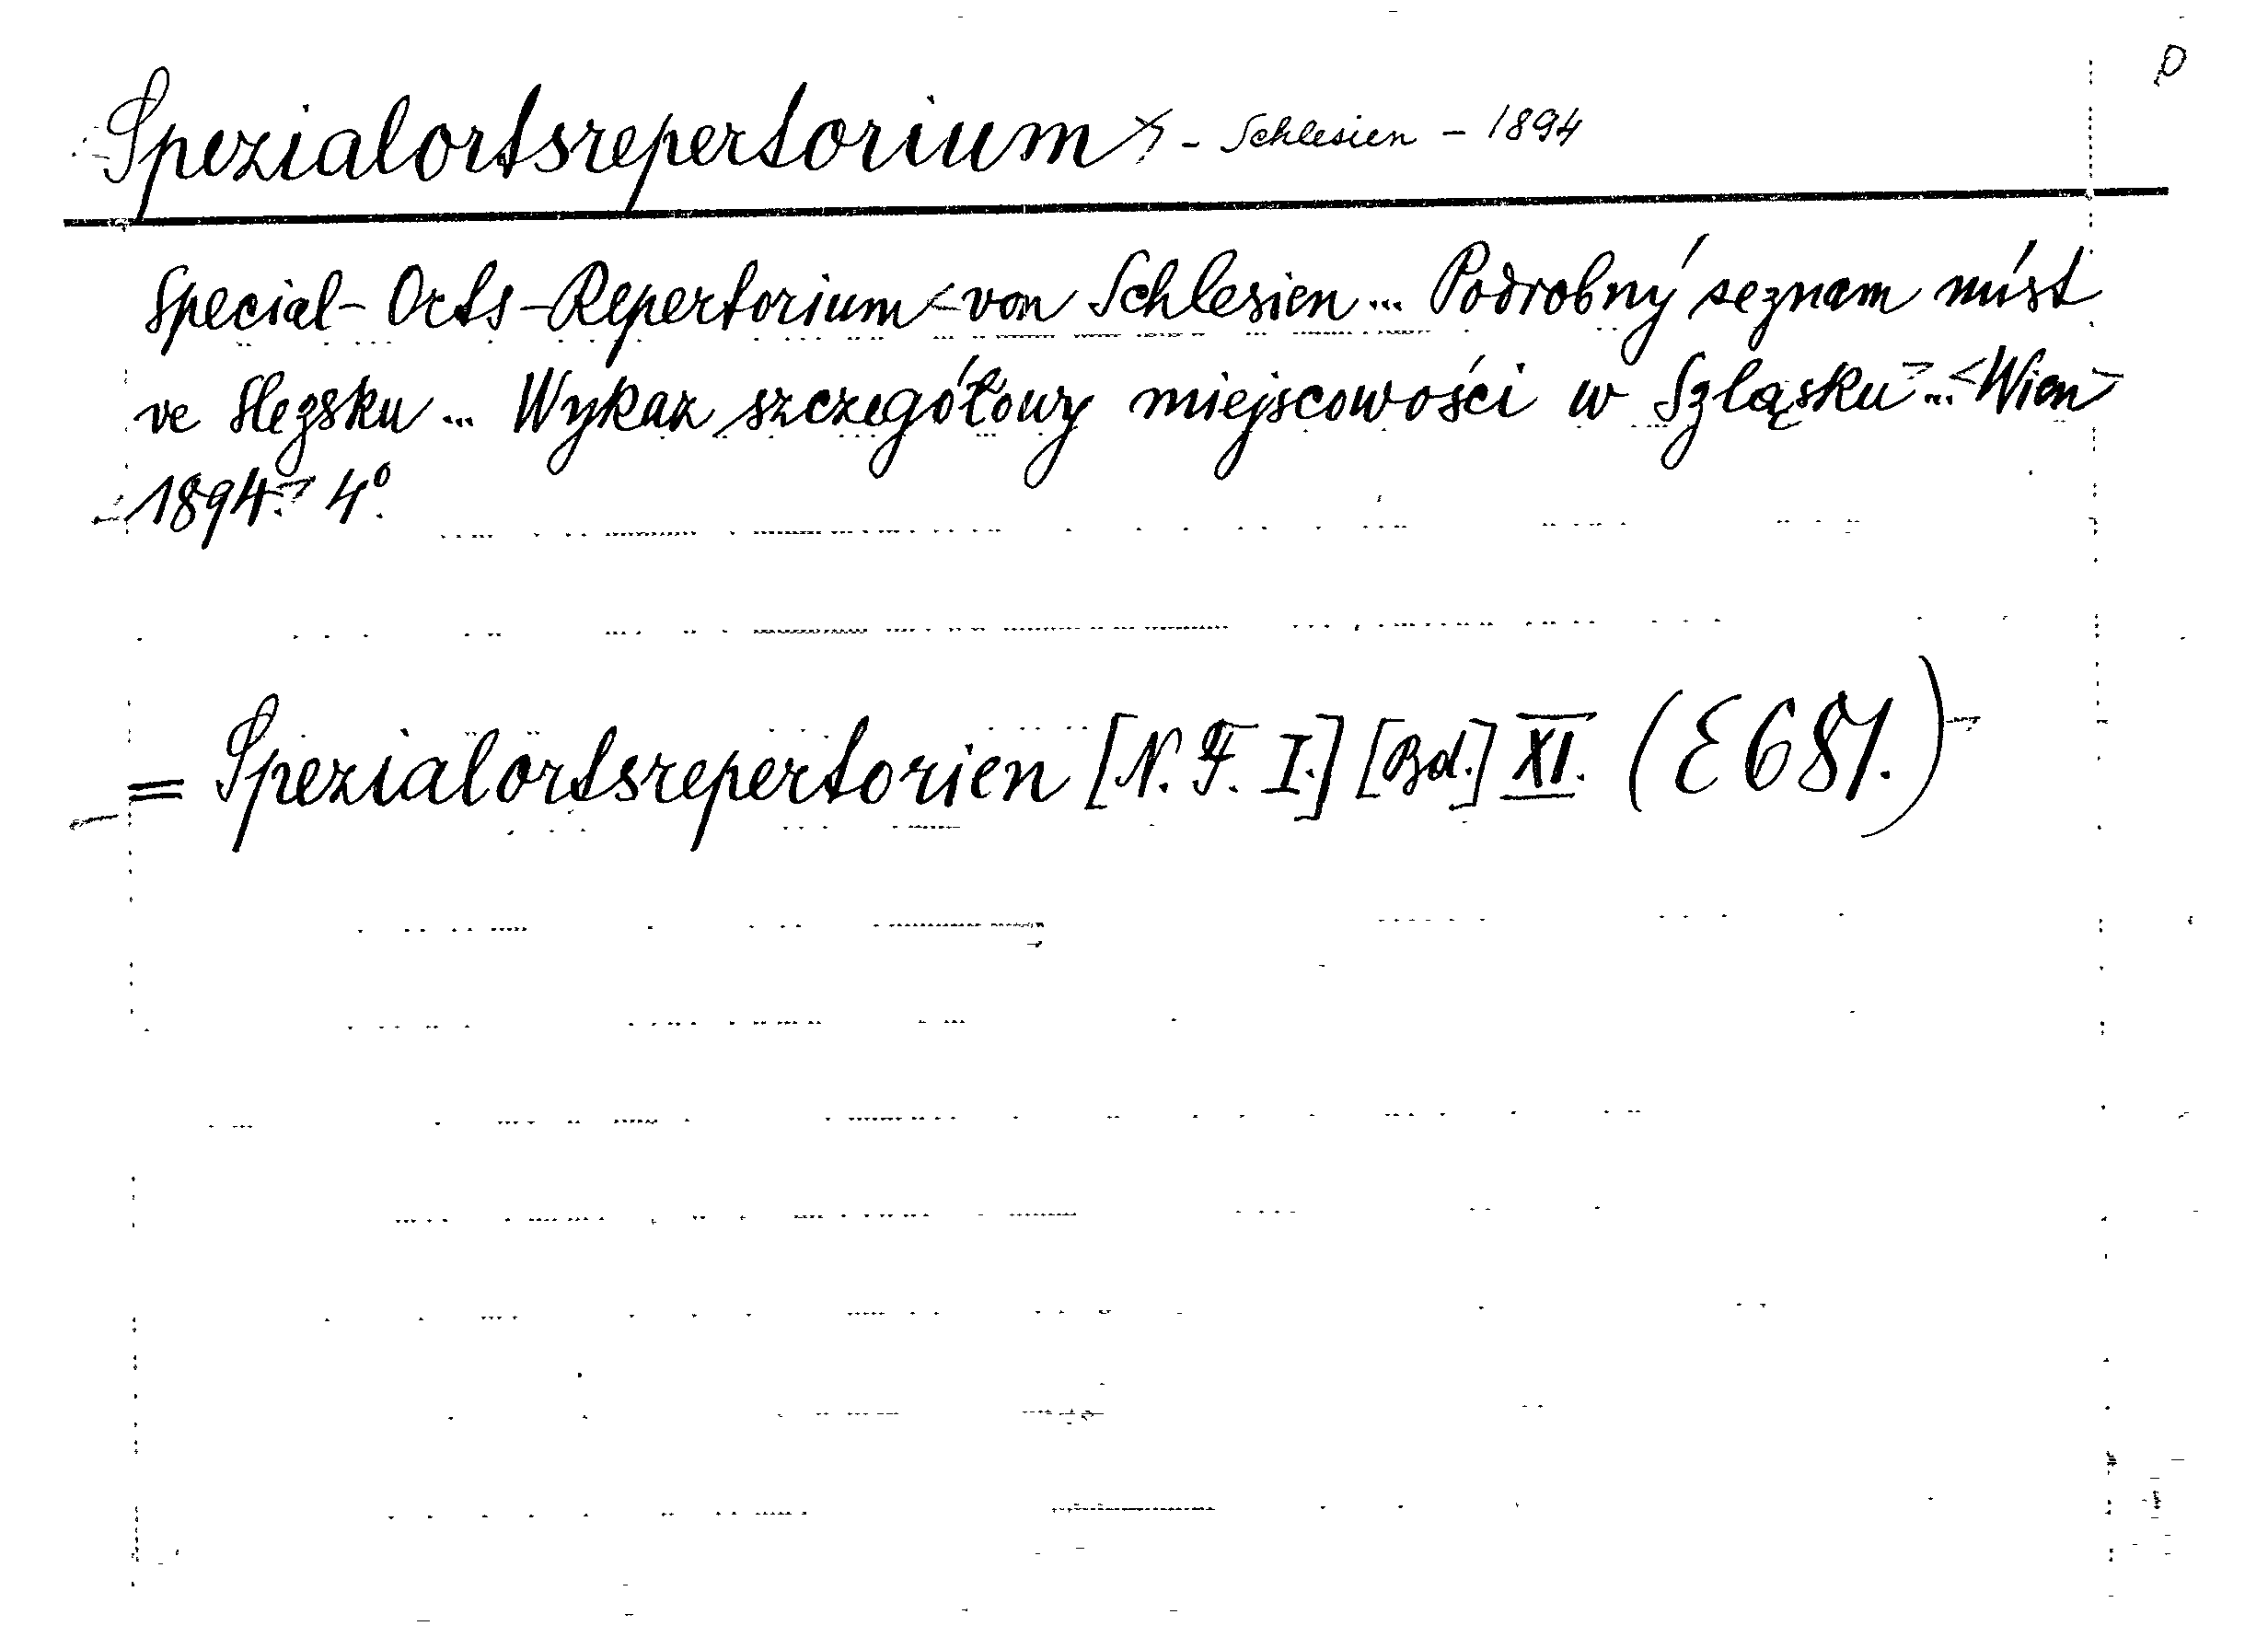 Spezialortsrepertorium - Schlesien - 1894
Special-Orts-Repertorium von Schlesien... Podrobný seznam míst
ve Slezsku... Wykaz szczegółowy miejscowości w Szląsku... Wien
1894. 4°.
= Spezialortsrepertorien [N. F. I.] [Bd.] XI. (E 681.)